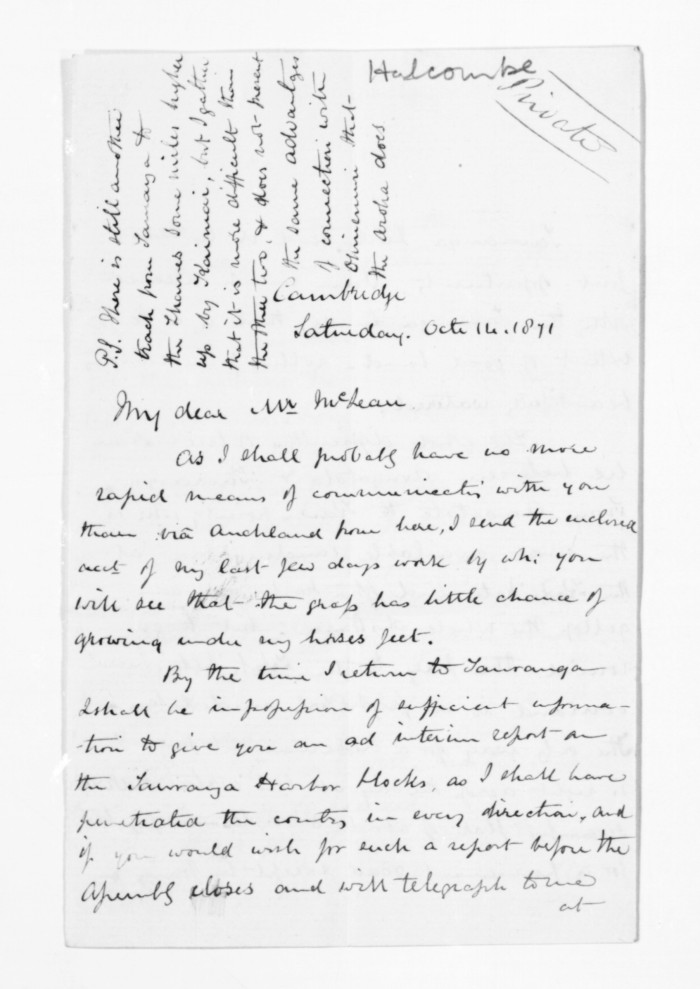 Halcombe
Private
P.S. There is still another
track from Tauranga to
the Thames some miles higher
up by Kaimai, but I gather
that it is more difficult than
the other two, & does not present
the same advantages
of connection with
Ohinemuri that
the Aroha does
Cambridge
Saturday. Octr 14. 1871
My dear Mr McLean
As I shall probably have no more
rapid means of communicatn with you
than via Auckland from here, I send the enclosed
acct of my last few days work by wh: you
will see that the grass has little chance of
growing under my horses feet.
By the time I return to Tauranga
I shall be in possession of sufficient informa-
tion to give you an ad interim report on
the Tauranga Harbor blocks, as I shall have
penetrated the country in every direction, and
if you would wish for such a report before the
Assembly closes and will telegraph to me
at